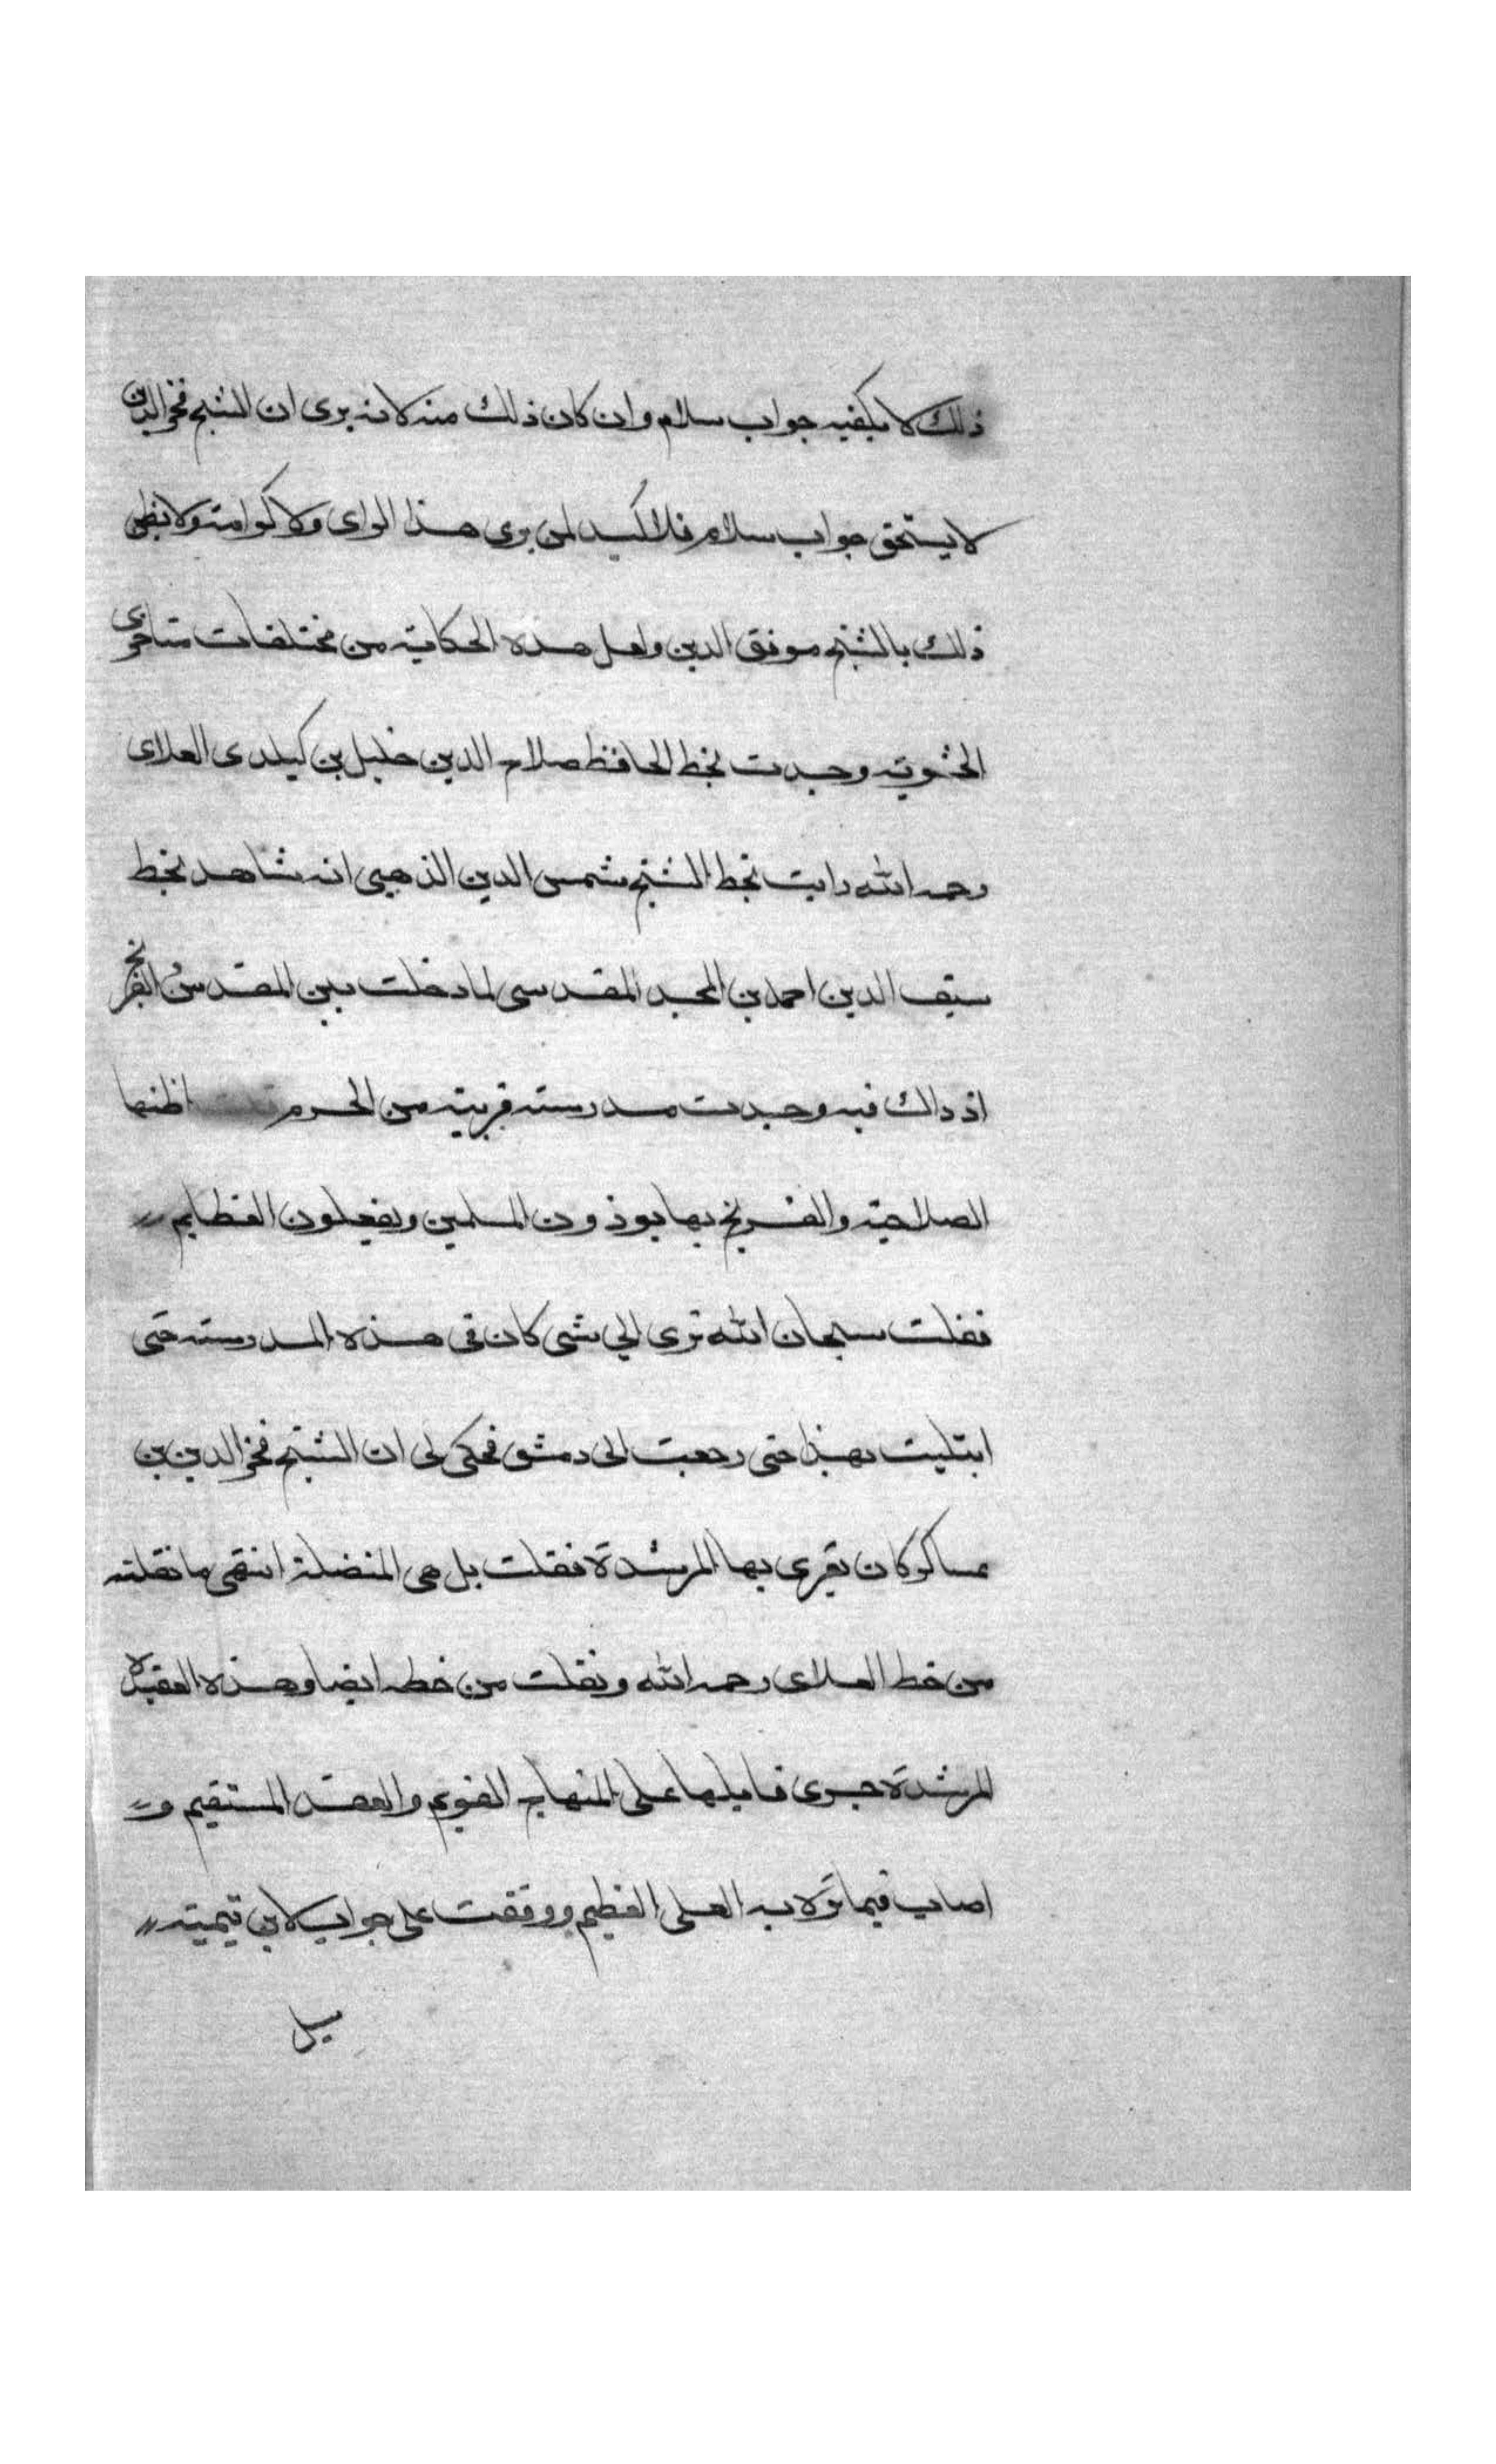 ذلك لا يكفيه جواب سلام وان كان ذلك منه لانه يرى ان الشيخ فخر الدين
لا يستحق جواب سلام فلا كيد لمن يرى هذا الراى ولا كرامة ولا يظن
ذلك بالشيخ موفق الدين ولعل هذه الحكاية من مختلقات متاخرى
الحشوية وجدت بخط الحافظ صلاح الدين خليل بن كيكلدى العلاى
رحمه الله رايت بخط الشيخ شمس الدين الذهبى انه شاهد بخط
سيف الدين احمد بن المجد المقدسى لما دخلت بيت المقدس والفرنج
اذ ذاك فيه وجدت مدرسة قريبة من الحرم اظنها
الصلاحية والفرنج بها يوذون المسلمين ويفعلون العظايم
فقلت سبحان الله ترى اي شى كان فى هذه المدرسة حتى
ابتليت بهذا حتى رجعت الى دمشق فحكى لى ان الشيخ فخر الدين بن
عساكر كان يقرى بها المرشدة فقلت بل هى المضلة انتهى ما نقلته
من خط العلاى رحمه الله ونقلت من خطه ايضا وهذه العقيدة
المرشدة جرى قايلها على المنهاج القويم والعقد المستقيم و
اصاب فيما نزه به العلى العظيم ووقفت على جواب لابن تيمية
سيل